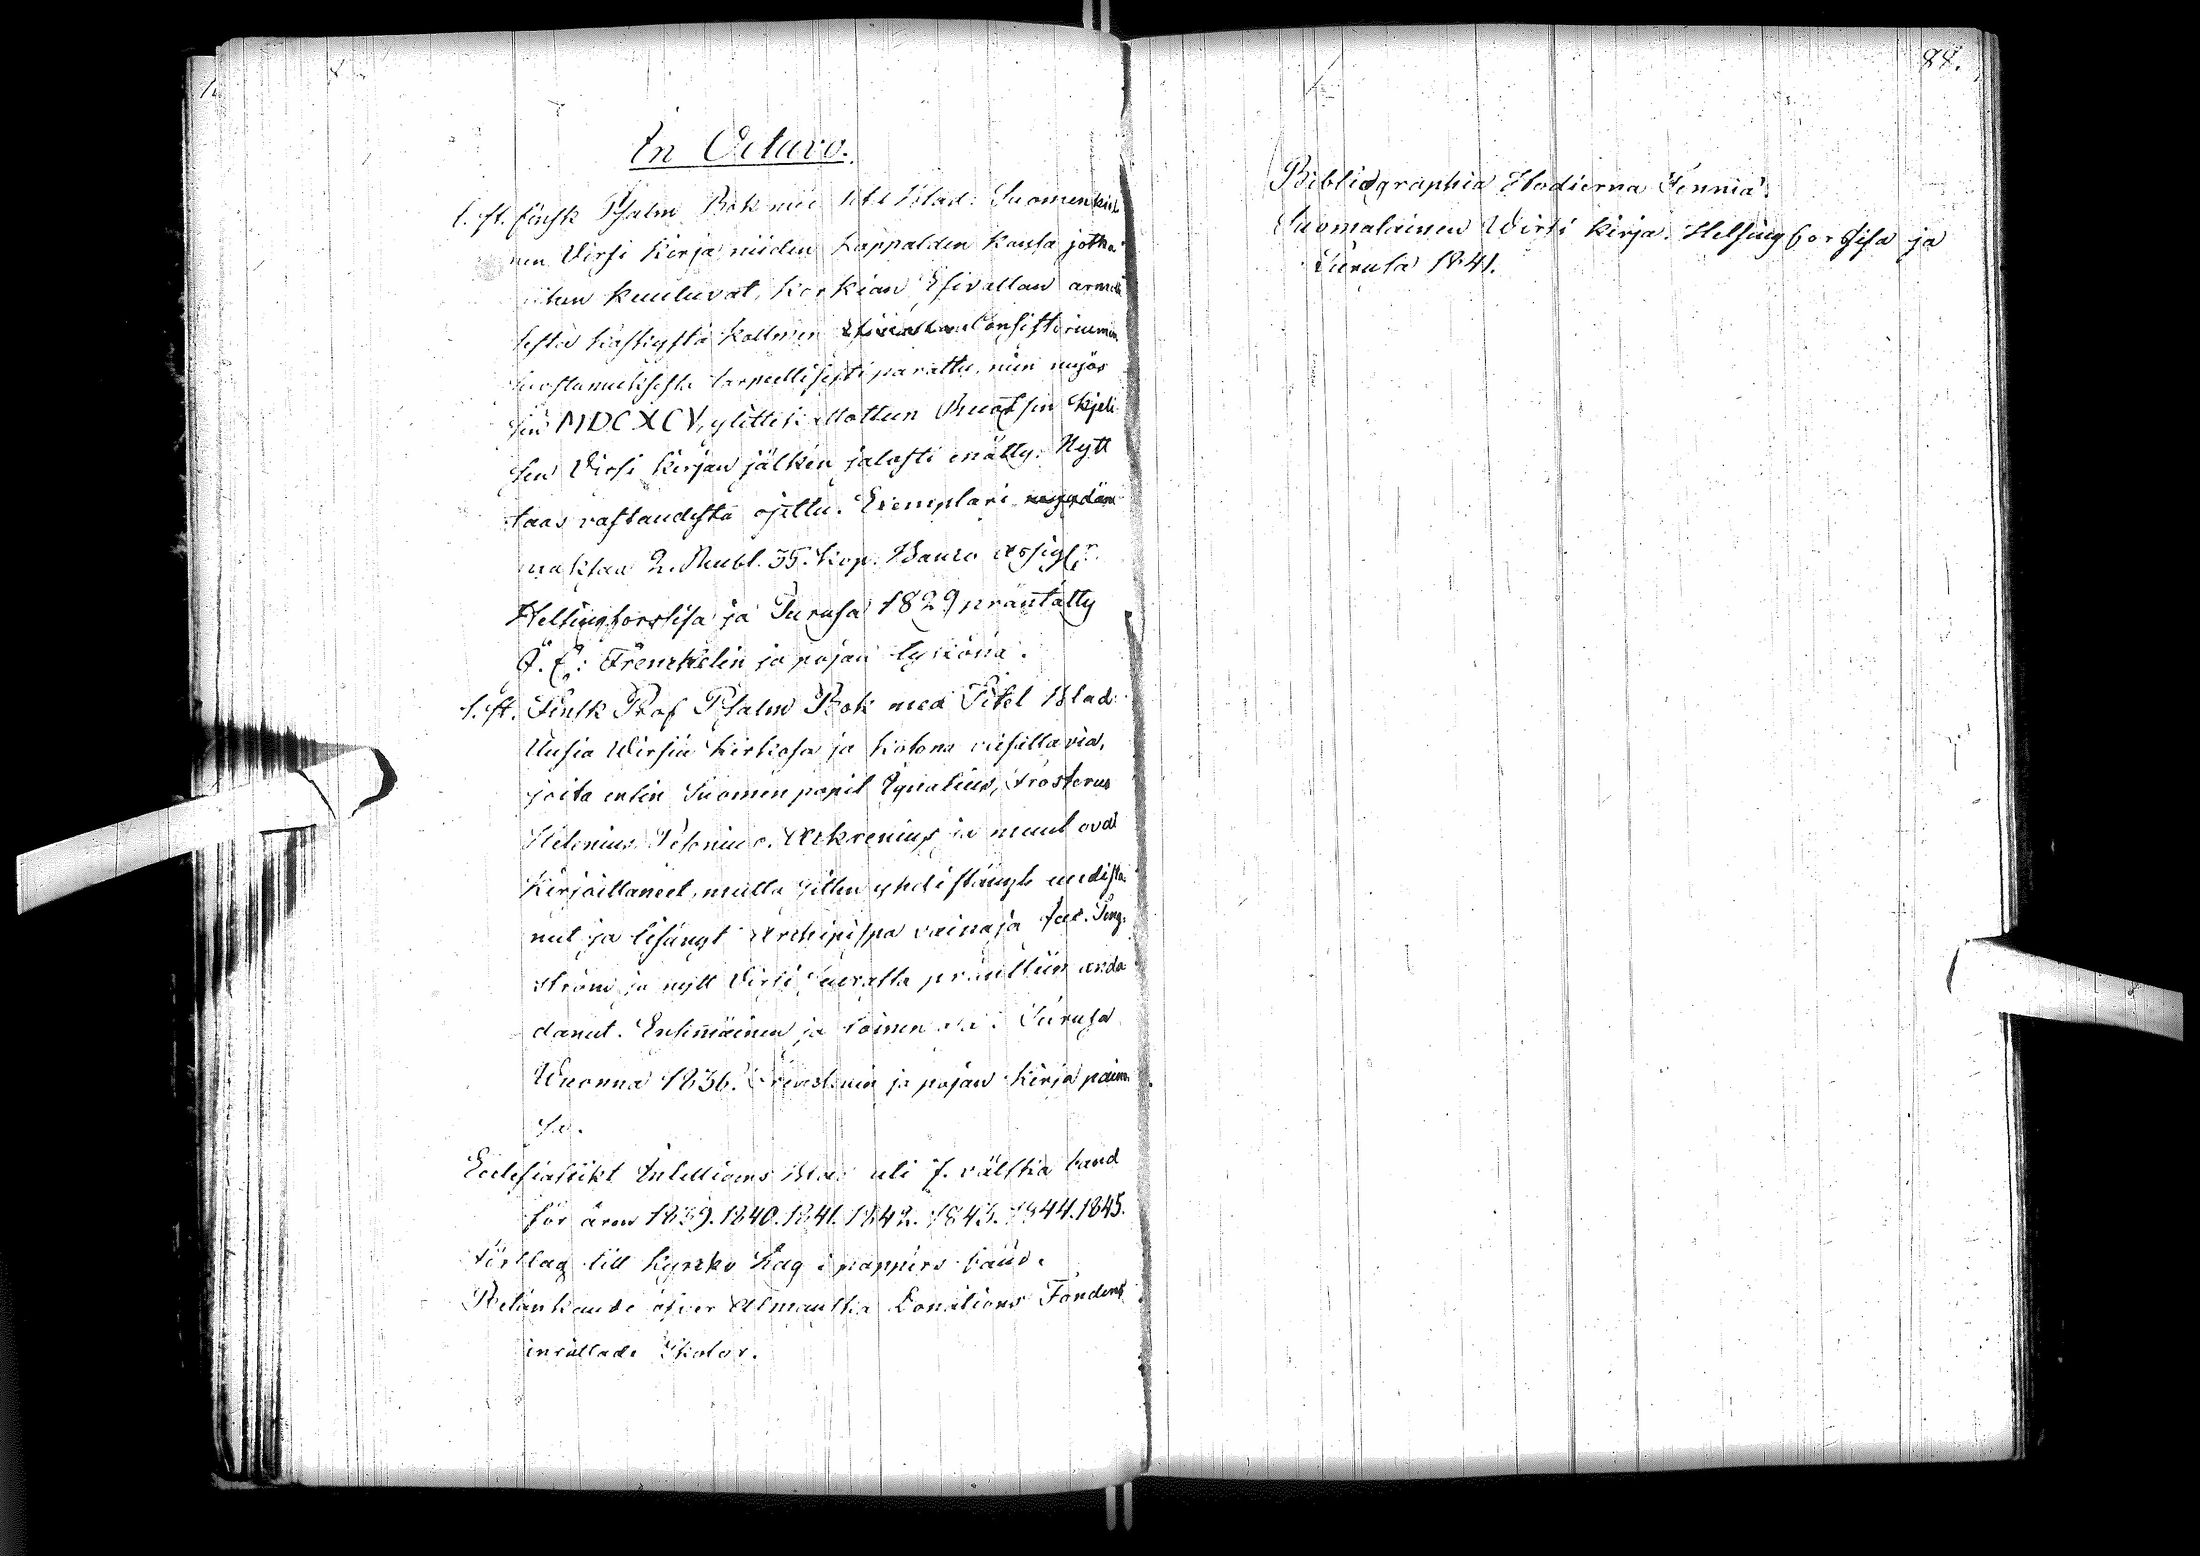 In Octavo.
1. st. finsk Psalm Bok med titel blad: Suomenkieli
nen Virsi Kirja niiden kappalden kansa jotka
kuuluvat, korkian Esivallan armoli
sesta käskystä kolmen Consistoriumin
suostumuksesta tarpeellisesti parattu, niin myös
sin MDCXCV, ylitte Ruotsin kjeli
sen Virsi kirjan jälken jalosti enätty. Nytt
taas vastaudesta ojettu. Exemplari myydän
maksaa 2. Rubl. 35. Kop. Banco Assigr.
Helsingforsisa ja Turusa 1829 präntätty
J. C: Frenckelin ja pojan tykönä.
1. st. Finsk Prof Psalm Bok med Titel blad
Uusia Wirsiä kirkosa ja kotona
joita enin Suomen papit Ignatius, Frosterus
Helenius, Achrenius ja muut ovat
Kirjoittaneet, mutta sitten yhdistänyt uudista
nut ja lisänyt Archipispa vainaja Jac. Teng-
ström ja nytt Virsi präntiin anda
danut. Ensimäinen ja toinen osa. Turusa
Wuonna 1836. Frenckelin ja pojan Kirja paino
sa.
Ecclesiastikt Intelligens Blad uti 7. välska band
för åren 1839. 1840. 1841. 1842. 1843. 1844. 1845.
Förslag till Kyrko Lag i pappers band.
Betänkande öfver Donations Fondens
inrättade Skolor.
88.
Bibliographia Hodierna Fennia.
Suomalainen Wirsi kirja. Helsingforsisa ja
Turusa 1841.